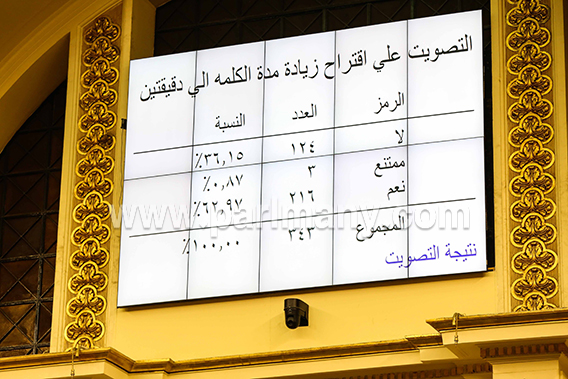 التصويت علي اقتراح زيادة مدة الكلمه الي دقيقتين
الرمز العدد النسبة
لا ١٢٤ ٣٦,١٥٪
ممتنع ٣ ٠,٨٧٪
نعم ٢١٦ ٦٢,٩٧٪
المجموع ٣٤٣ ١٠٠,٠٠٪
نتيجة التصويت
www.parlmany.com